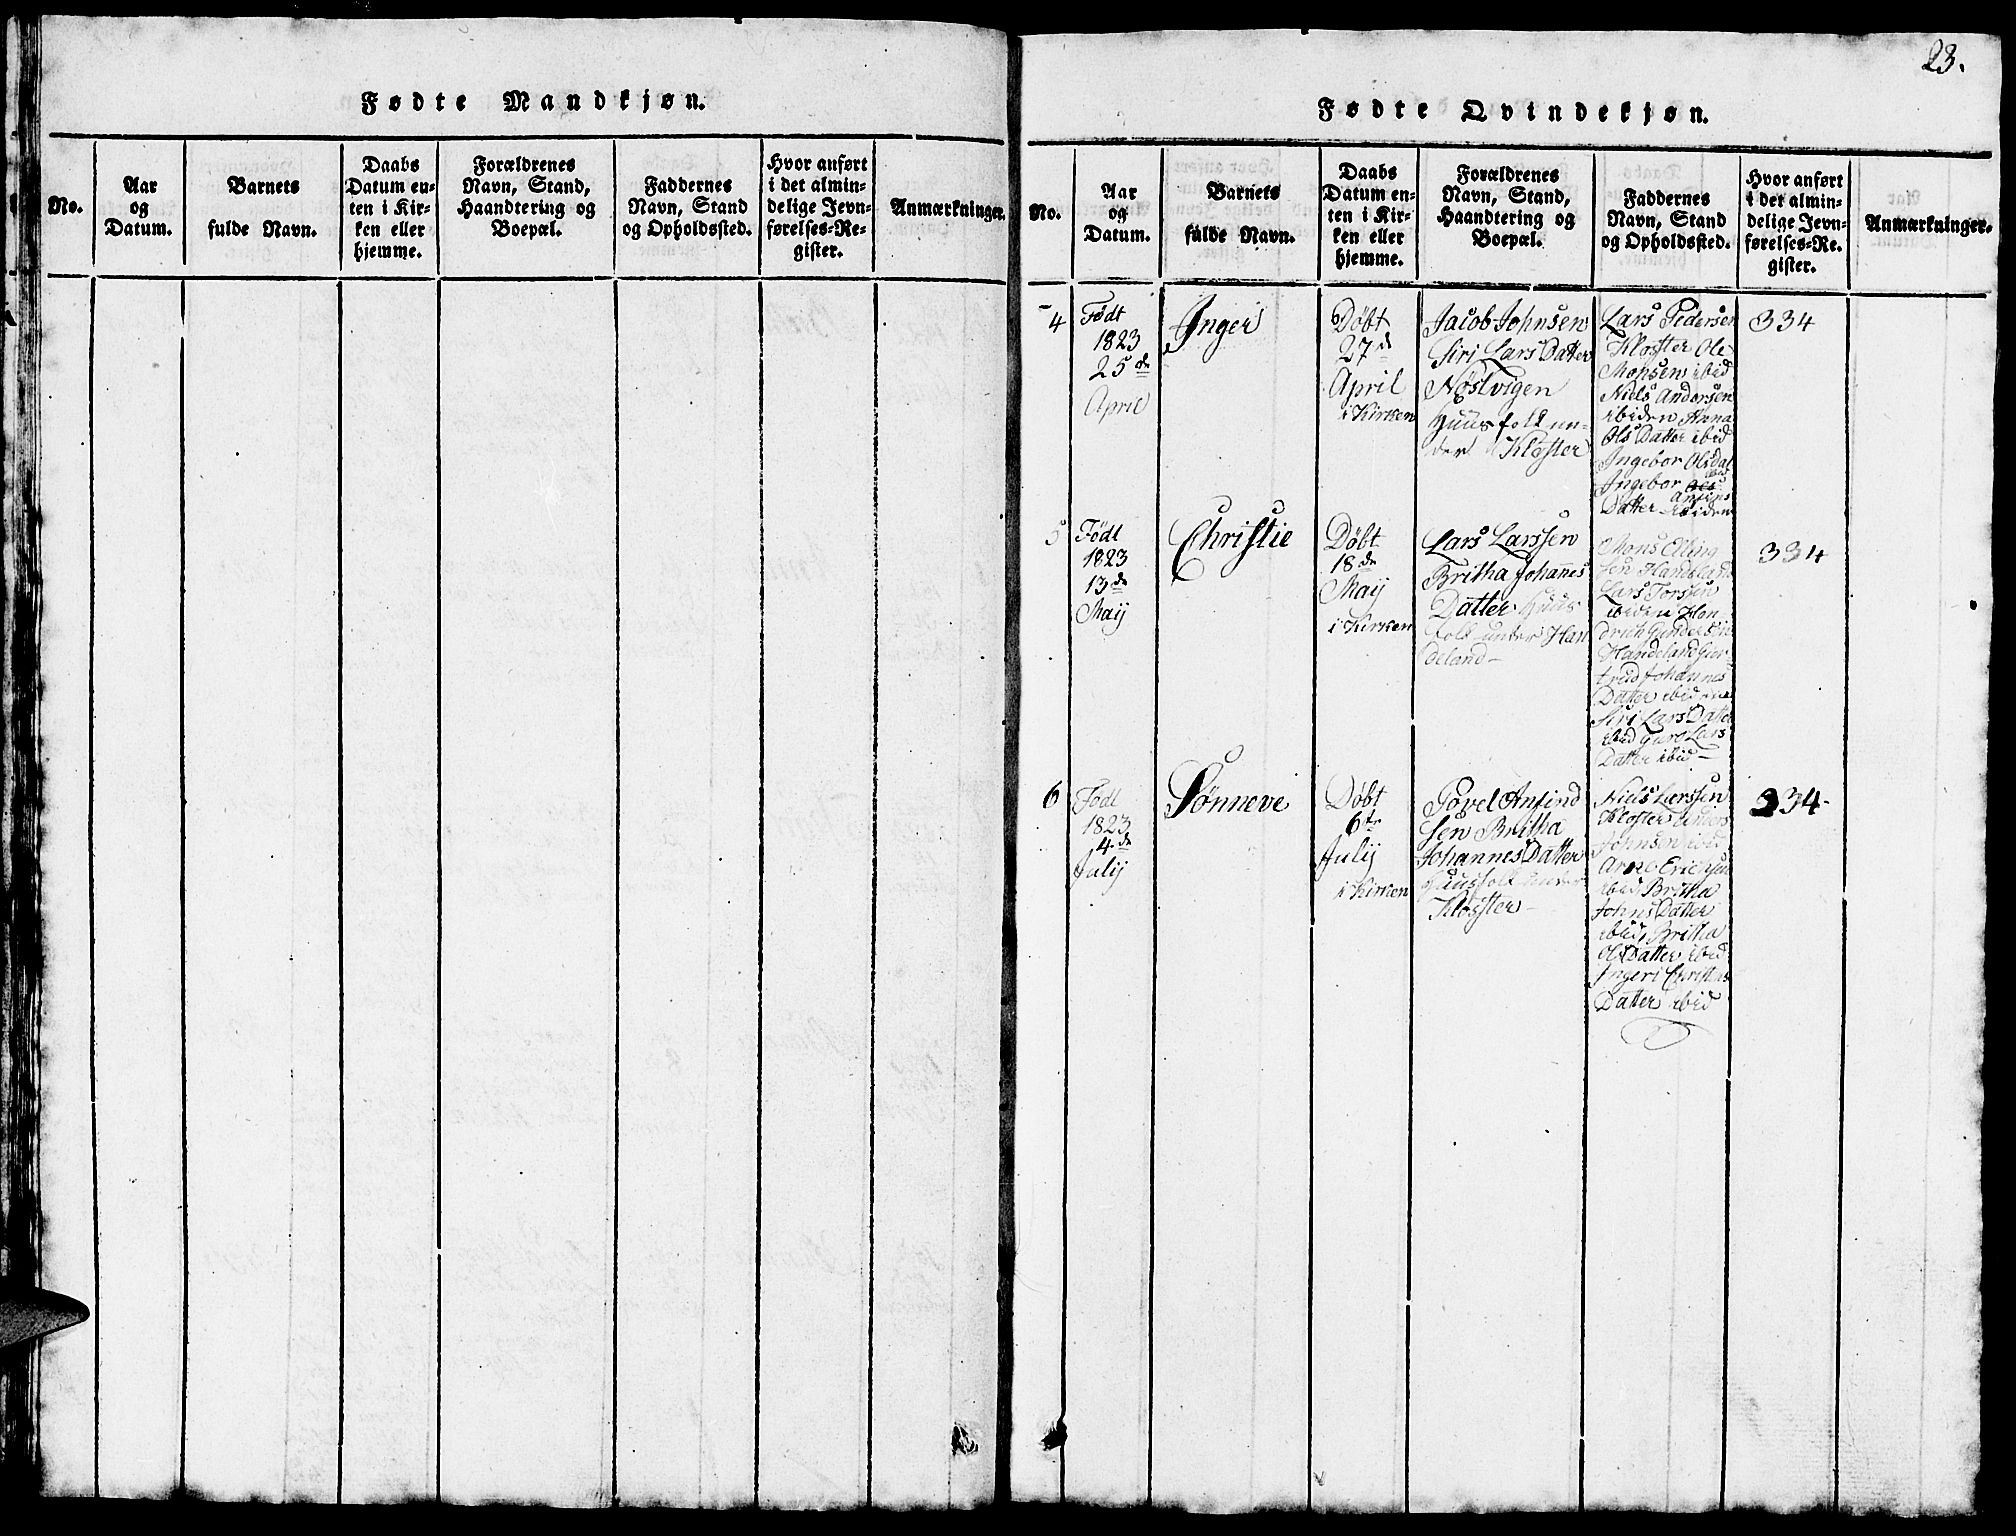 Fødte Mandkjøn.
No.
Aar
og
Datum.
Barnets
fulde Navn.
Daabs
Datum en-
ten i Kir-
ken eller
hjemme.
Forældrenes
Navn, Stand,
Haandtering og
Boepæl.
Faddernes
Navn, Stand
og Opholdssted.
Hvor anført
i det almin-
delige Jevn-
førelses-Re-
gister.
Anmærkninger.
23.
Fødte Qvindekjøn.
No.
Aar
og
Datum.
Barnets
fulde Navn.
Daabs
Datum en-
ten i Kir-
ken eller
hjemme.
Forældrenes
Navn, Stand,
Haandtering og
Boepæl.
Faddernes
Navn, Stand
og Opholdssted.
Hvor anført
i det almin-
delige Jevn-
førelses-Re-
gister.
Anmærkninger.
4
Født
1823
25de
April
Inger
Døbt
27d
April
i Kirken
Jacob Johnsen
Siri Lars Datter
Nøstvigen
Huusfolk un-
der Kloster
Lars Pedersen
Kloster Ole
Monsen ibid
Niels Andersen
ibiden Anna
Ols Datter ibid
Ingebor Olsdat
ibid
Ingebor
Anfins
Datter ibiden
334
5
Født
1823
13de
Maij
Christie
Døbt
18de
Maij
i Kirken
Lars Larssen
Britha Johannes
Datter Huus
folk under Han
deland-
Mons Elling
sen Handeland
Lars Torssen
ibiden Hen-
drich Gundersen
Handeland Gier-
trud Johannes
Datter ibiden
Siri Lars Datter
ibid Guro Lars
Datter ibid-
334
6
Født
1823
4de
Julij
Sønneve
Døbt
6te
Julij
i Kirken
Povel Anfind
sen Britha
Johannes Datter
Huusfolk under
Kloster-
Niels Larssen
Kloster Anders
Johnsen ibid
Arne Erichsen
ibid Britha
Johns Datter
ibid, Britha
Ols Datter ibid
Ingeri Christens
Datter ibid
334-